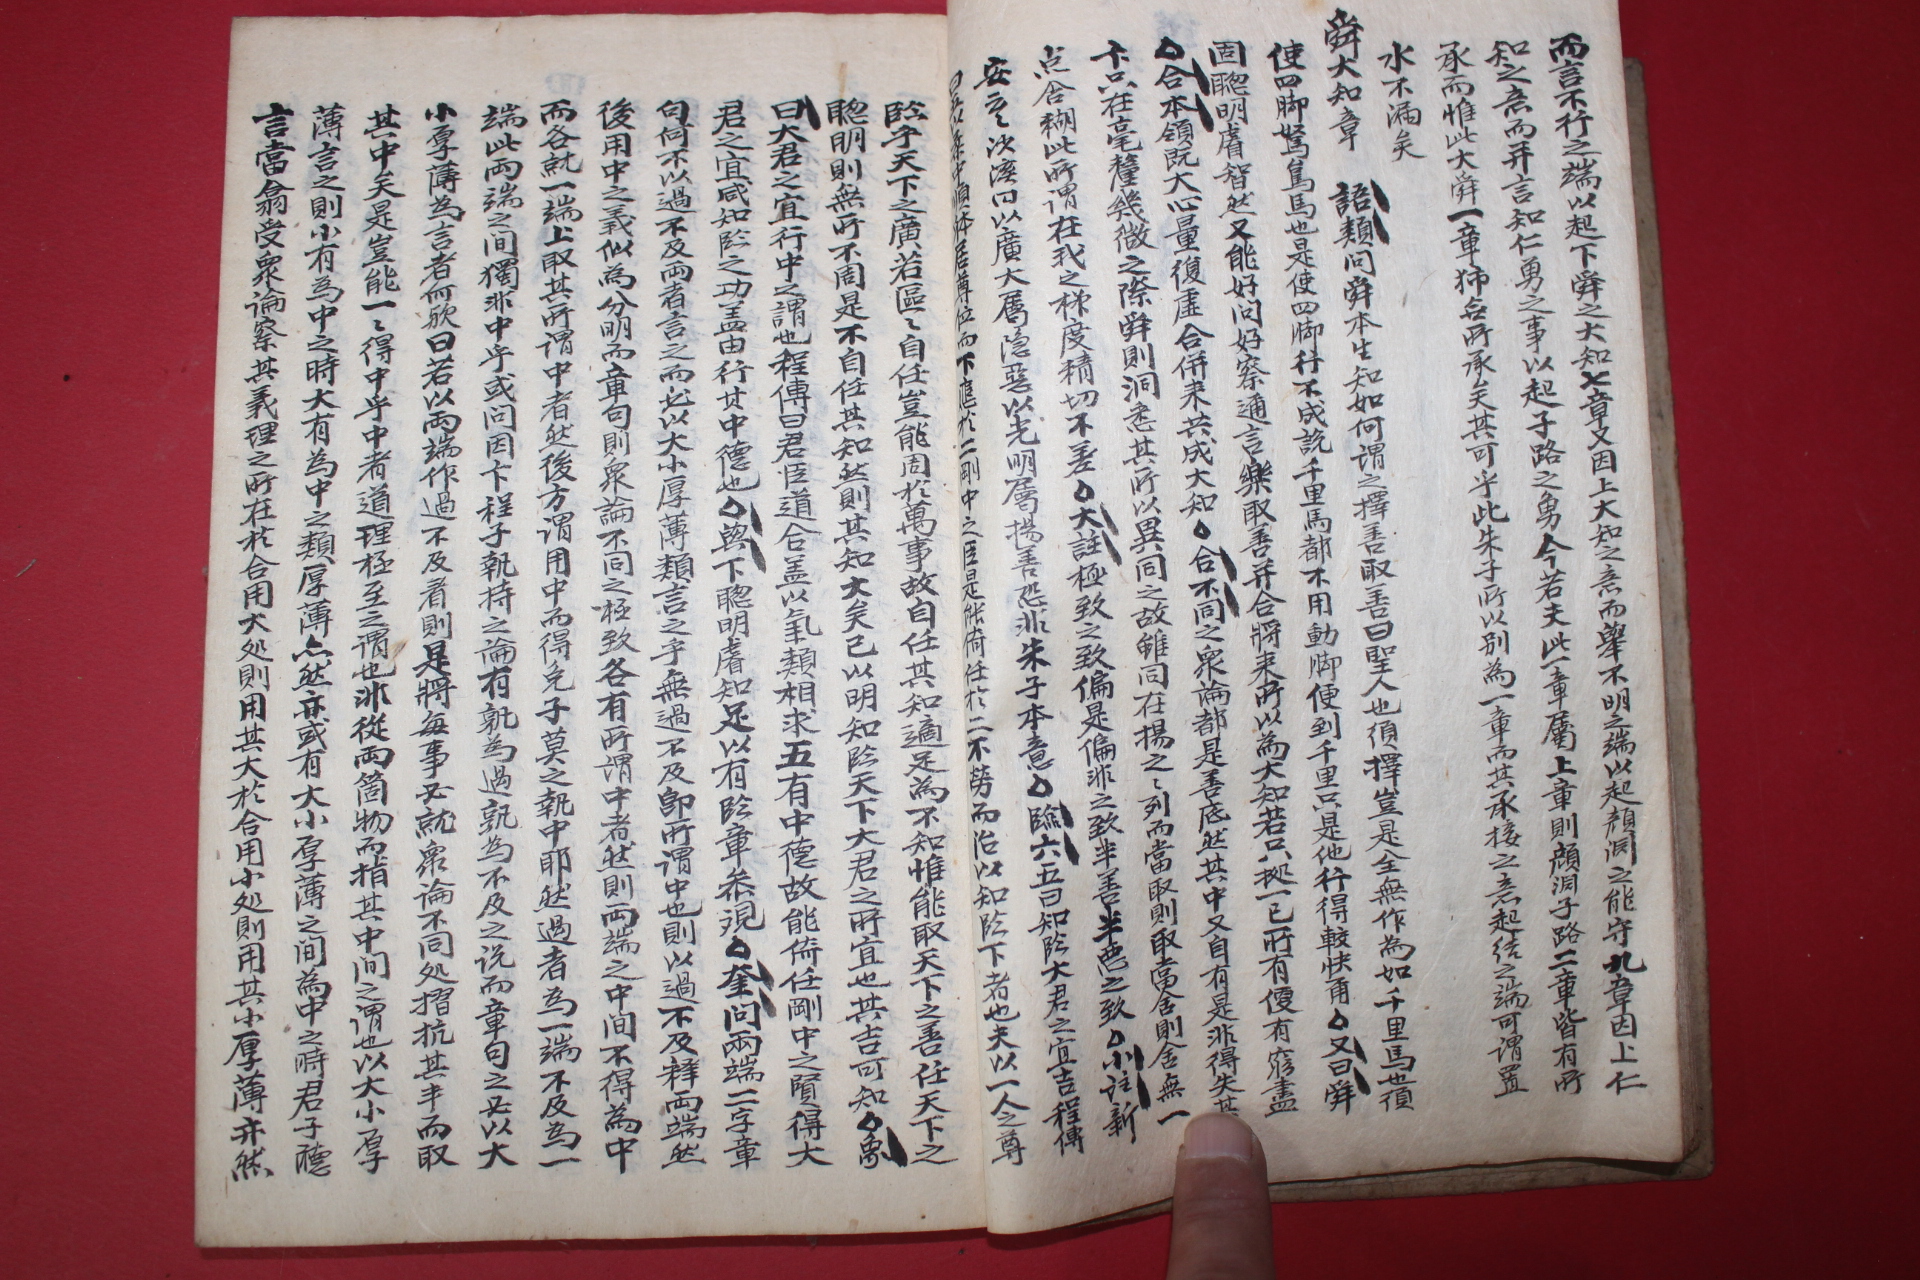 而言不行之端以起下舜之大知七章又因上大知之意而擧不明之端以起顔淵之能守九章因上仁
知之意而并言知仁勇之事以起子路之勇今若夫此一章屬上章則顔淵子路二章皆有所
承而惟此大舜一章獨無所承矣其可乎此朱子所以別為一章而其承接之意起結之端可謂置
水不漏矣
舜大知章 語類問舜本生知如何謂之擇善取善曰聖人也須擇豈是全無作為如千里馬也須
使四脚駑馬也是使四脚行不成說千里馬都不用動脚便到千里只是他行得較快甬又曰舜
固聰明睿智然又能好問好察邇言樂取善并合將來所以為大知若只據一己所有便有窮盡
合本領既大心量復虛合併来共成大知合不同之衆論都是善底然其中又自有是非得失其
不只在毫釐幾微之際舜則洞悉其所以異同之故雖同在揚之之列而當取則取當舍則舍無一
点含糊此所謂在我之权度精切不差大註極致之致偏是偏非之致半善半惡之致小註新
安云次溪曰以廣大屬隱惡以光明屬揚善恐非朱子本意臨六五曰知臨大君之宜吉程傳
曰五以柔中順体居尊位而下應於二剛中之臣是能倚任於二不勞而治以知臨下者也夫以一人之尊
臨乎天下之廣若區〻自任豈能周於萬事故自任其知適足為不知惟能取天下之善任天下之
聰明則無所不周是不自任其知然則其知大矣己以明知臨天下大君之所宜也其吉可知象
曰大君之宜行中之謂也程傳曰君臣道合盖以氣類相求五有中德故能倚任剛中之賢得大
君之宜咸知臨之功盖由行其中德也與下聰明睿知足以有臨章叅現奎問兩端二字章
句何不以過不及兩者言之而必以大小厚薄類言之乎無過不及卽所謂中也則以過不及釋兩端然
後用中之義似為分明而章句則衆論不同之極致各有所謂中者然則兩端之中间不得為中
而各就一端上取其所謂中者然後方謂用中而得免子莫之執中耶然過者為一端不及為一
端此兩端之间獨非中乎或问因下程子執持之論有孰為過孰為不及之说而章句之必以大
小厚薄為言者何歟曰若以兩端作過不及看則是將每事必就衆論不同処摺抗其半而取
其中矣是豈能一〻得中乎中者道理极至之謂也非從兩箇物而指其中间之謂也以大小厚
薄言之則小有為中之時大有為中之類厚薄亦然亦或有大小厚薄之间為中之時君子德
言當翕受衆論察其義理之所在於合用大処則用其大於合用小処則用其小厚薄亦然